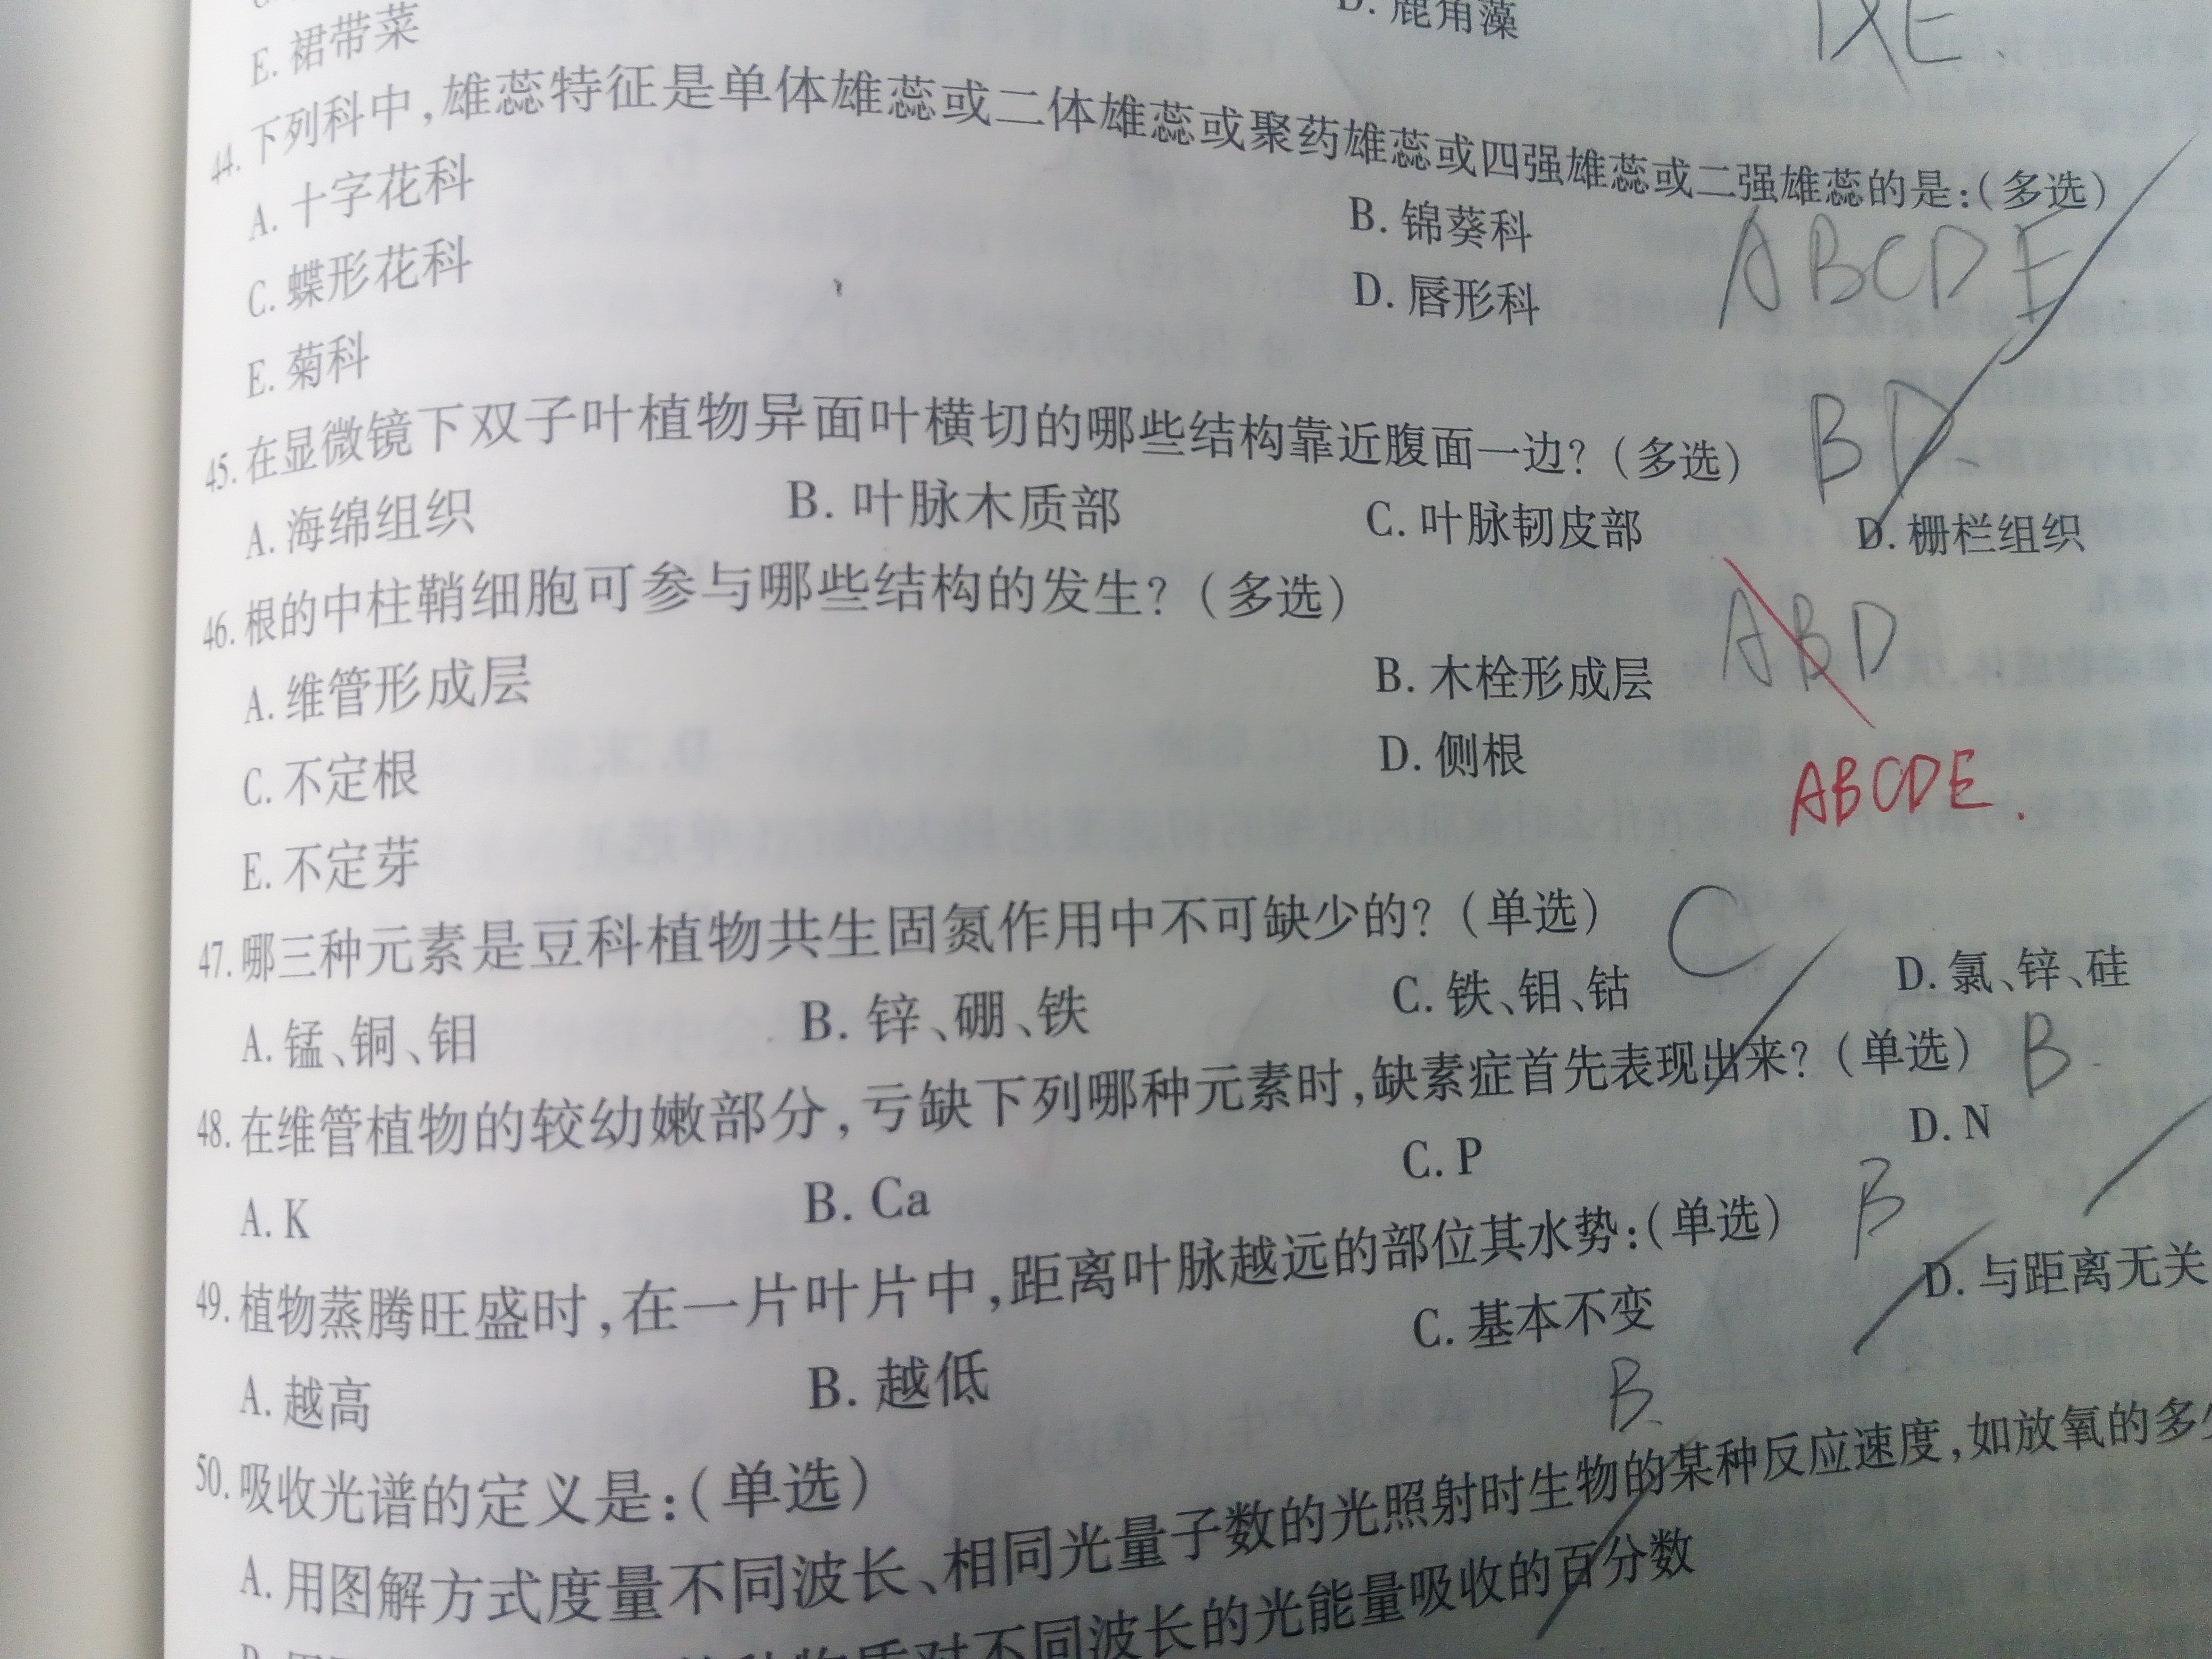 E. 裙带菜
D. 鹿角藻
44. 下列科中,雄蕊特征是单体雄蕊或二体雄蕊或聚药雄蕊或四强雄蕊或二强雄蕊的是:(多选)
A. 十字花科 B. 锦葵科
ABCDE
C. 蝶形花科 D. 唇形科
E. 菊科
45. 在显微镜下双子叶植物异面叶横切的哪些结构靠近腹面一边?(多选) BD
A. 海绵组织 B. 叶脉木质部 C. 叶脉韧皮部 D. 栅栏组织
46. 根的中柱鞘细胞可参与哪些结构的发生?(多选)
ABD
A. 维管形成层 B. 木栓形成层
C. 不定根 D. 侧根
ABCDE.
E. 不定芽
47. 哪三种元素是豆科植物共生固氮作用中不可缺少的?(单选) C
A. 锰、铜、钼 B. 锌、硼、铁 C. 铁、钼、钴 D. 氯、锌、硅
48. 在维管植物的较幼嫩部分,亏缺下列哪种元素时,缺素症首先表现出来?(单选) B
A. K B. Ca C. P D. N
49. 植物蒸腾旺盛时,在一片叶片中,距离叶脉越远的部位其水势:(单选) B
A. 越高 B. 越低 C. 基本不变 D. 与距离无关
50. 吸收光谱的定义是:(单选) B
A. 用图解方式度量不同波长、相同光量子数的光照射时生物的某种反应速度,如放氧的多
物质对不同波长的光能量吸收的百分数